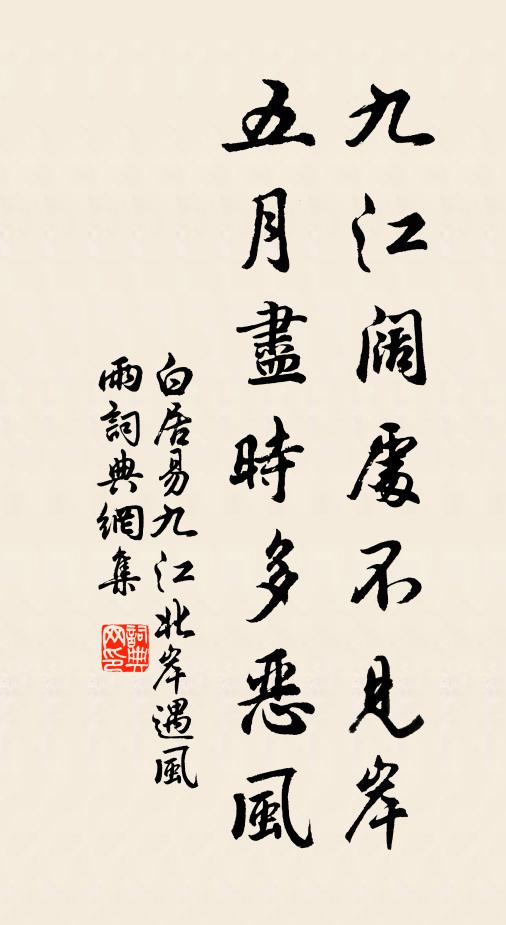 九江闊處不見岸
五月盡時多惡風
白居易九江北岸遇風
雨詞典網集
詞典
网印